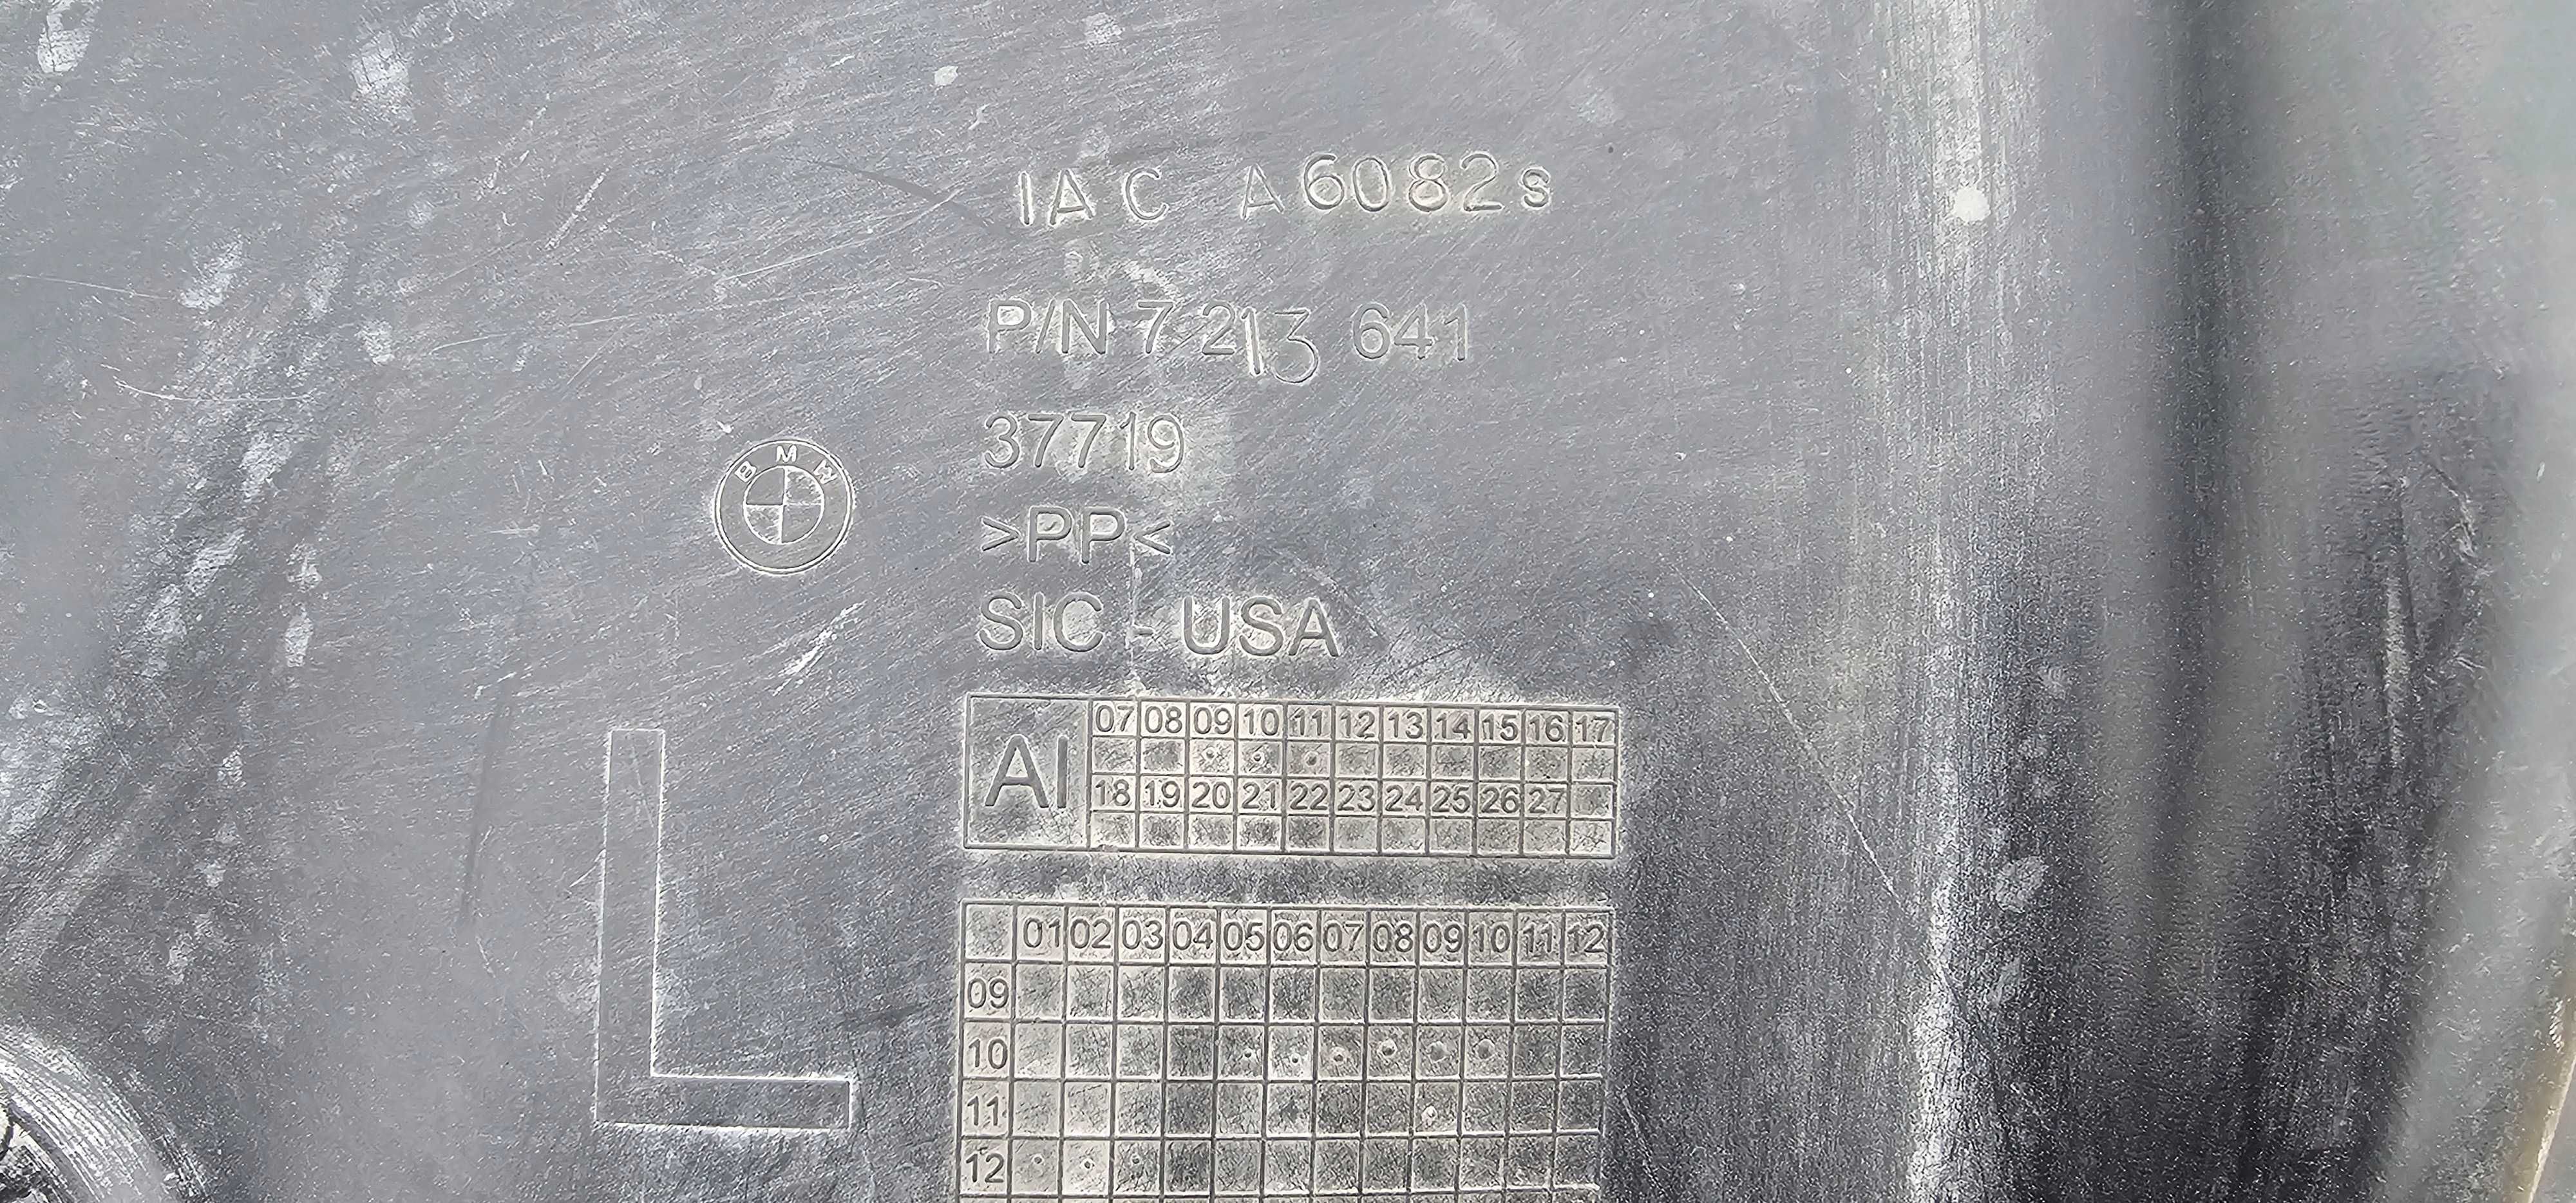 IAC A6082s
P/N 7 213 641
37719
BMW
>PP<
SIC - USA
AI
07 08 09 10 11 12 13 14 15 16 17
18 19 20 21 22 23 24 25 26 27
L
01 02 03 04 05 06 07 08 09 10 11 12
09
10
11
12